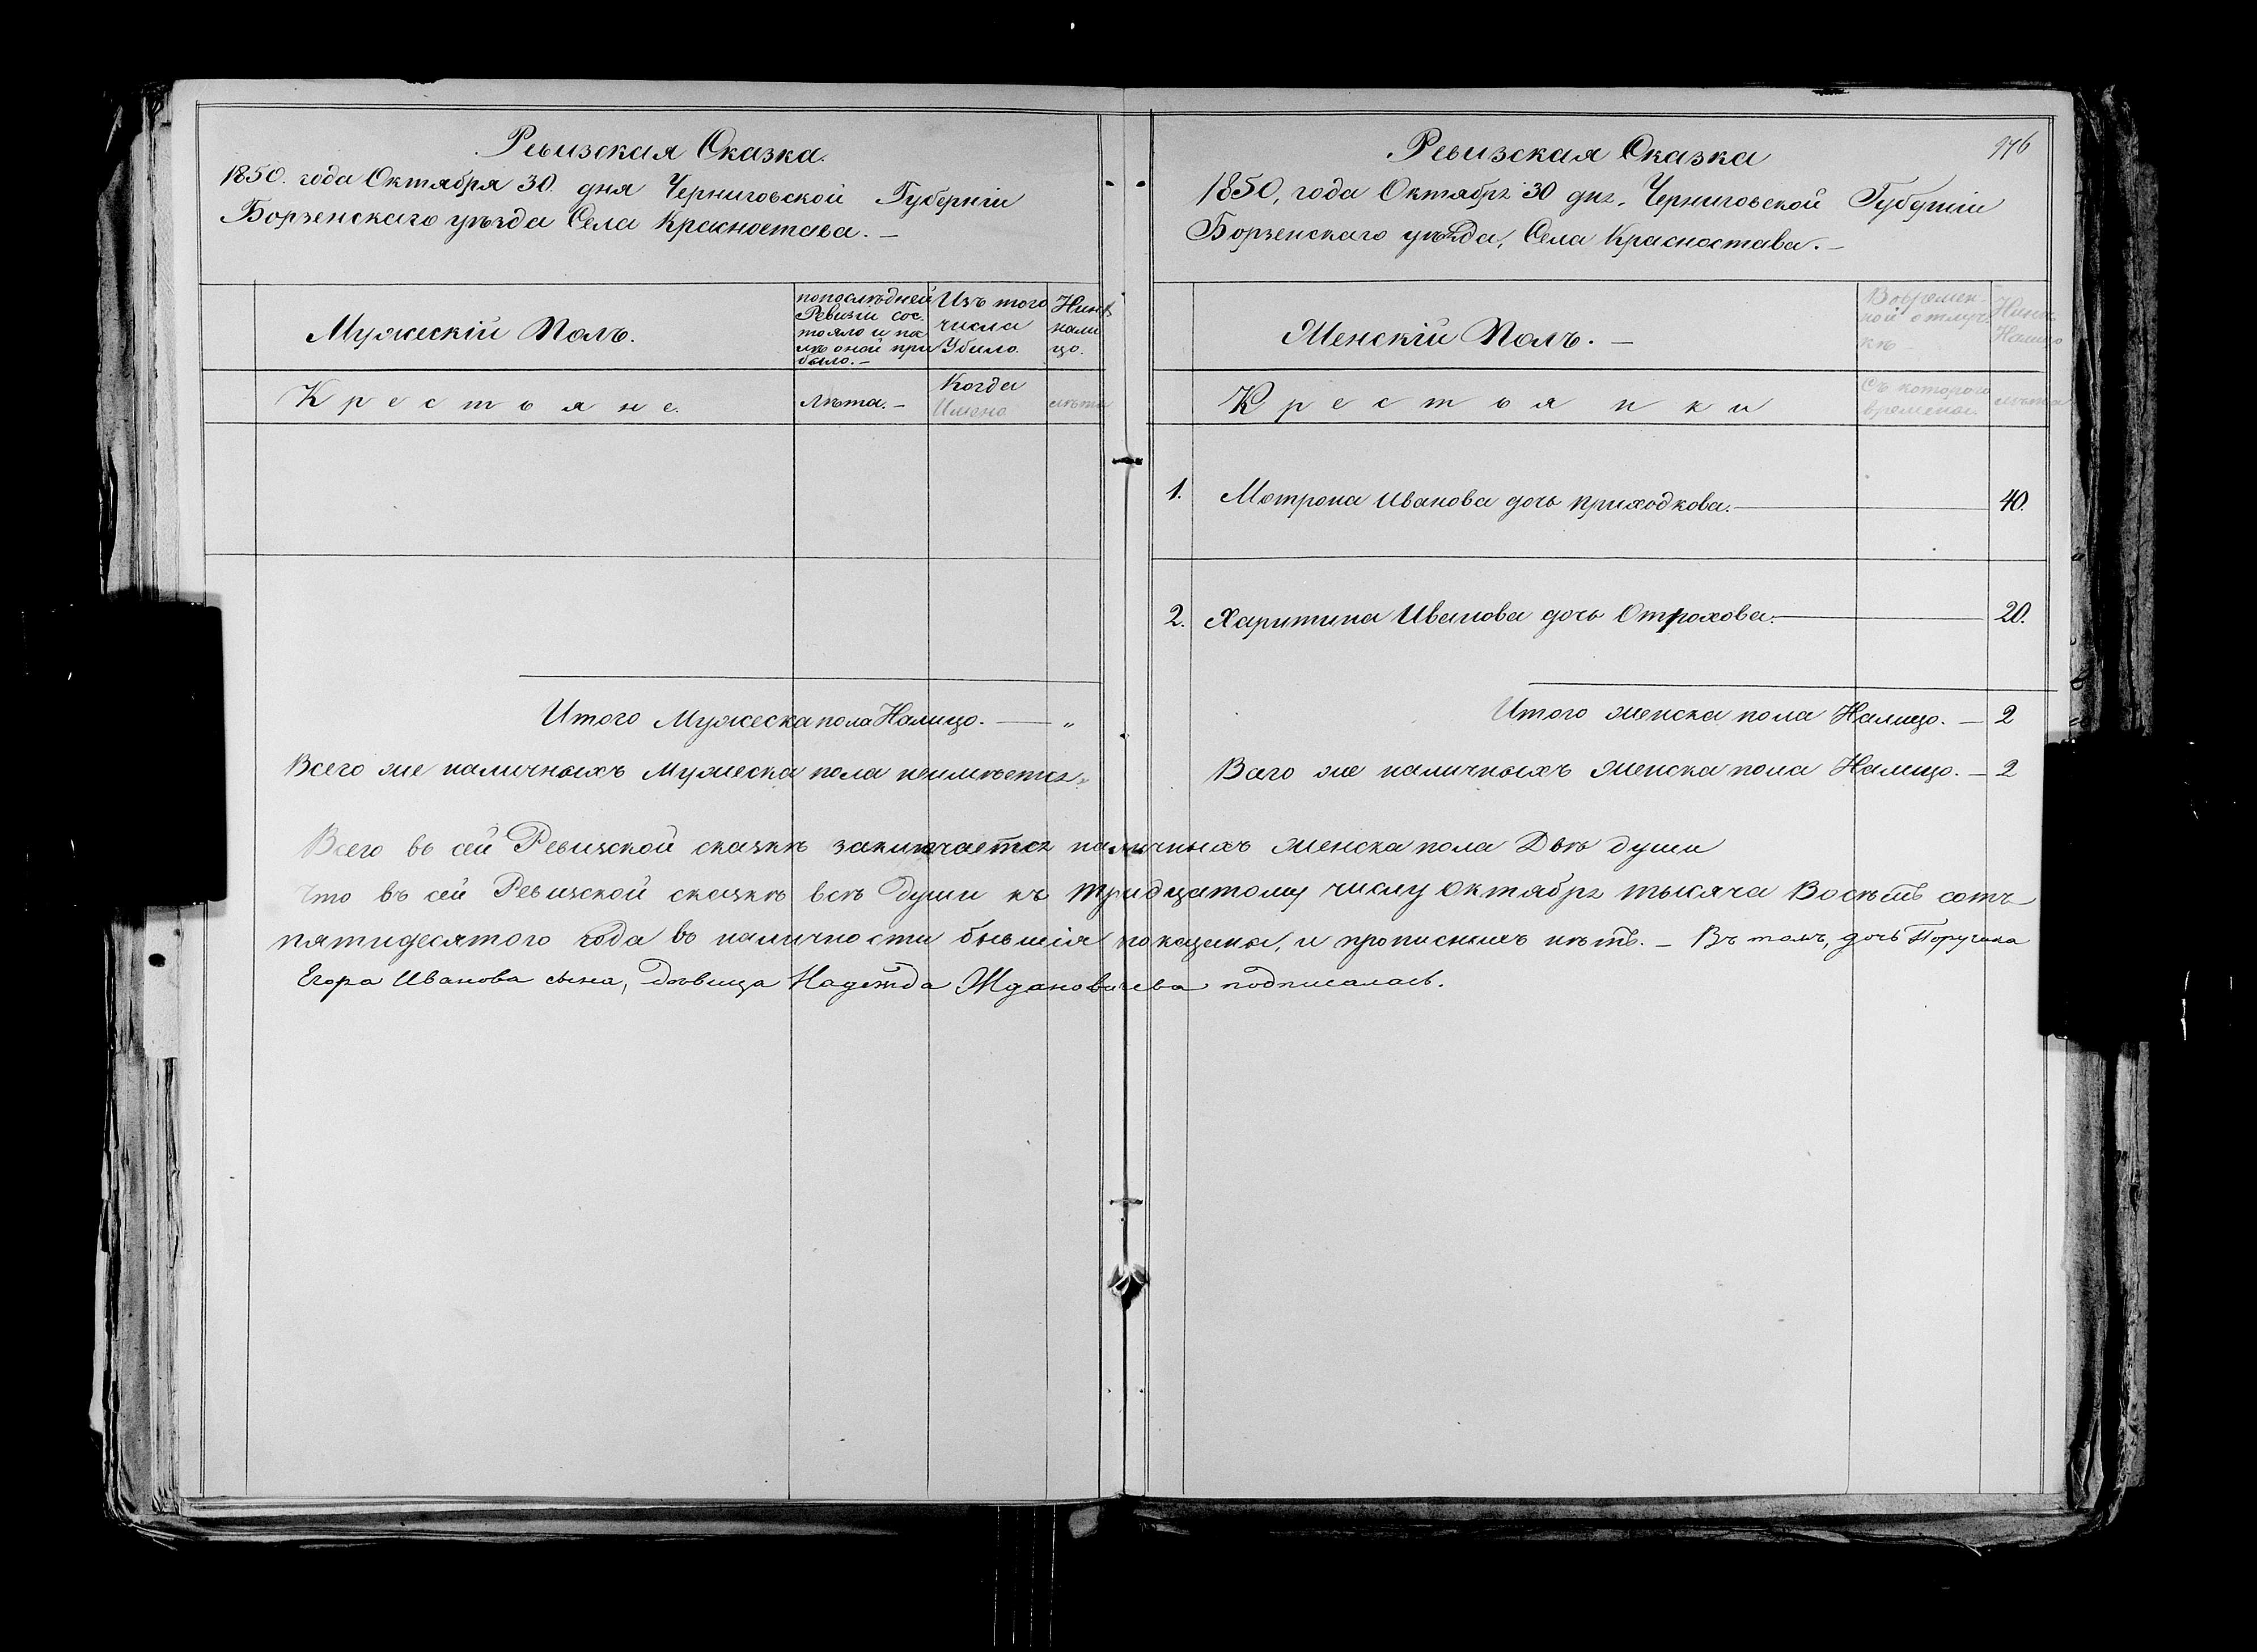 Ревизская Сказка.
1850. года Октября 30. дня Черниговской Губерніи
Борзенскаго уѣзда Села Красностава. —
Мужескій Полъ.
попослѣдней
Ревизіи сос.
тояло и пос
лѣ оной при
было. —
Изъ того
числа
Убыло.
Нынѣ
нали
цо.
Крестьяне.
Лѣта. —
Когда
Имено
лѣта
Итого Мужеска пола Налицо. — „
Всего же наличныхъ Мужеска пола неимѣется.
976
Ревизская Сказка
1850, года Октября 30 дня. Черниговской Губерніи
Борзенскаго уѣзда, Села Красностава. —
Женскій Полъ. —
Вовремен-
ной отлуч-
кѣ —
Нынѣ
Налицо
Крестьянки
Съ котораго
времени.
лѣта
1. Мотрона Иванова дочь Приходкова. — 40.
2. Харитина Иванова дочь Отрохова. — 20.
Итого женска пола Налицо. — 2
Всего же наличныхъ Женска пола Налицо. — 2
Всего въ сей Ревизской сказкѣ заключается наличныхъ Женска пола Двѣ души
Что въ сей Ревизской сказкѣ всѣ Души къ тридцатому числу Октября тысяча Восѣмъ сотъ
пятидесятого года въ наличности бывшія показаны, и прописныхъ нѣтъ. — Въ томъ, дочь Поручика
Егора Иванова сына, Дѣвица Надежда Ждановичева подписалась.